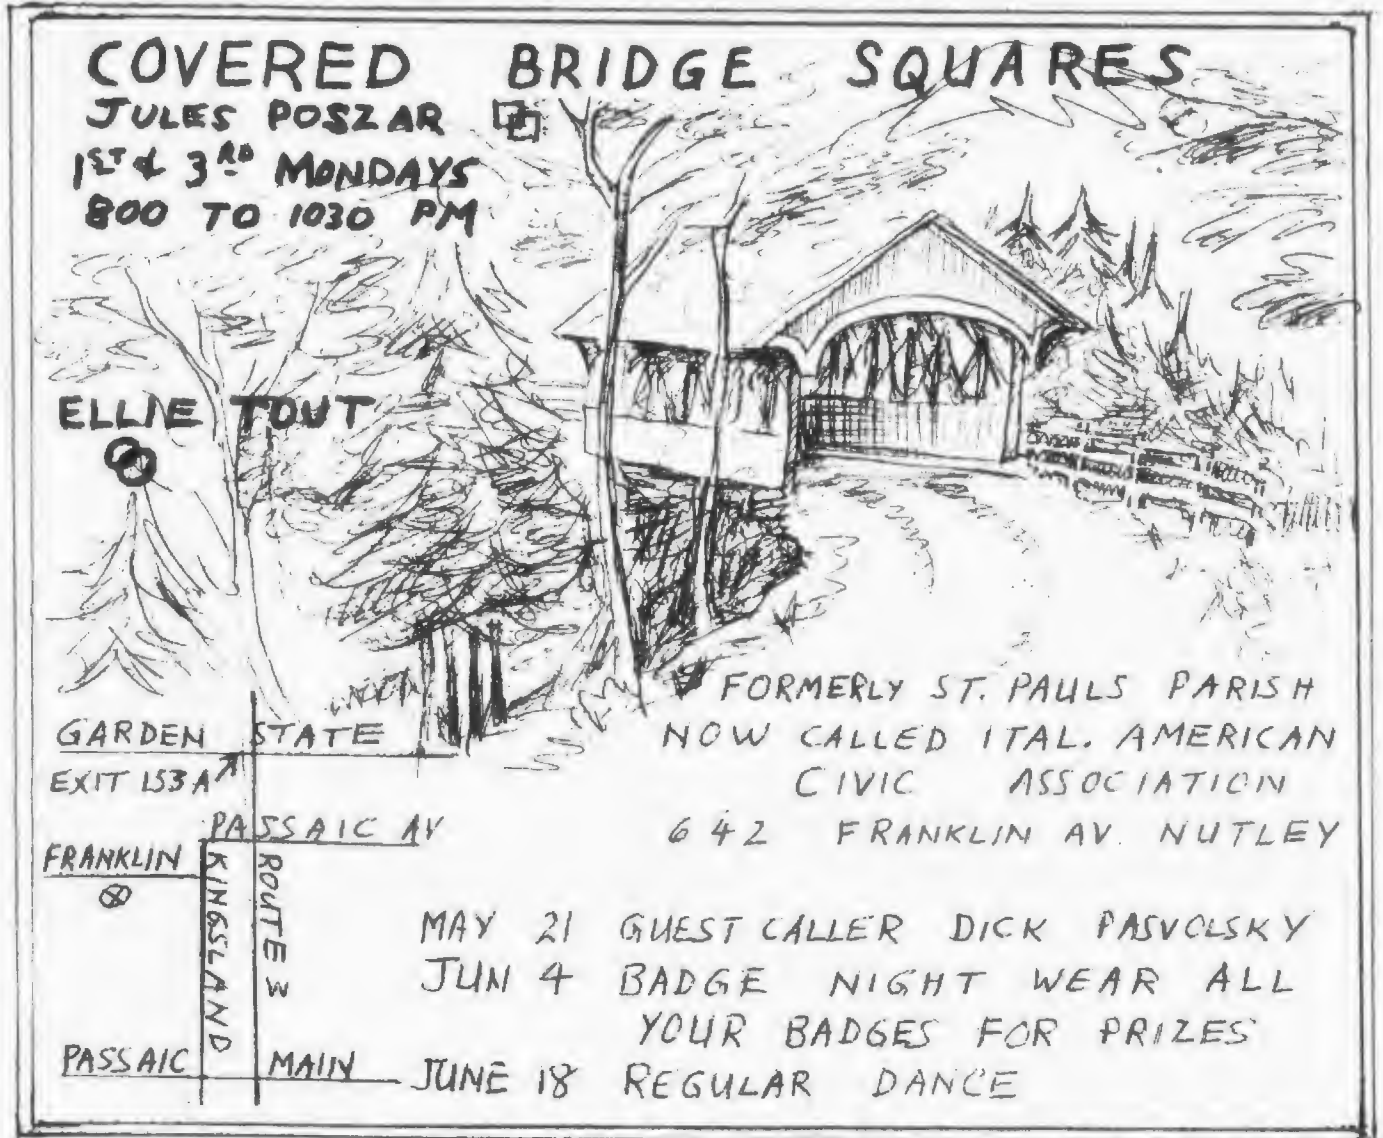 COVERED BRIDGE SQUARES
JULES POSZAR
1ST & 3RD MONDAYS
800 TO 1030 PM
ELLIE TOUT
FORMERLY ST. PAULS PARISH
NOW CALLED ITAL. AMERICAN
CIVIC ASSOCIATION
642 FRANKLIN AV. NUTLEY
GARDEN STATE
EXIT 153A
PASSAIC AV
FRANKLIN
KINGSLAND
ROUTE 3
PASSAIC
MAIN
MAY 21 GUEST CALLER DICK PASVOLSKY
JUN 4 BADGE NIGHT WEAR ALL
YOUR BADGES FOR PRIZES
JUNE 18 REGULAR DANCE